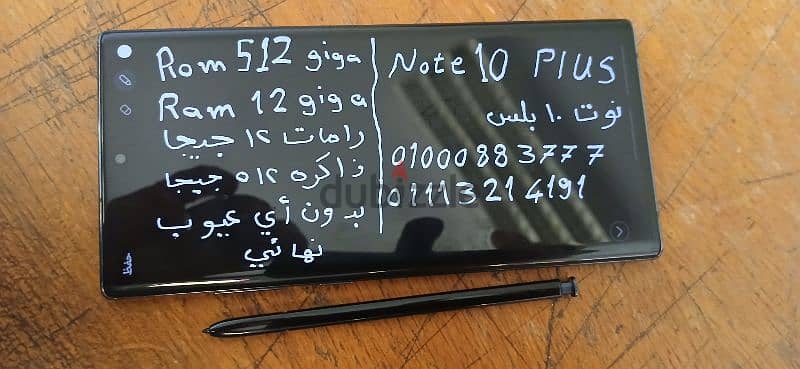 Rom 512 giga
Ram 12 giga
رامات ١٢ جيجا
ذاكره ٥١٢ جيجا
بدون أي عيوب
نهائي
حفظ
Note 10 Plus
نوت ١٠ بلس
01000883777
01113214191
dubizzle